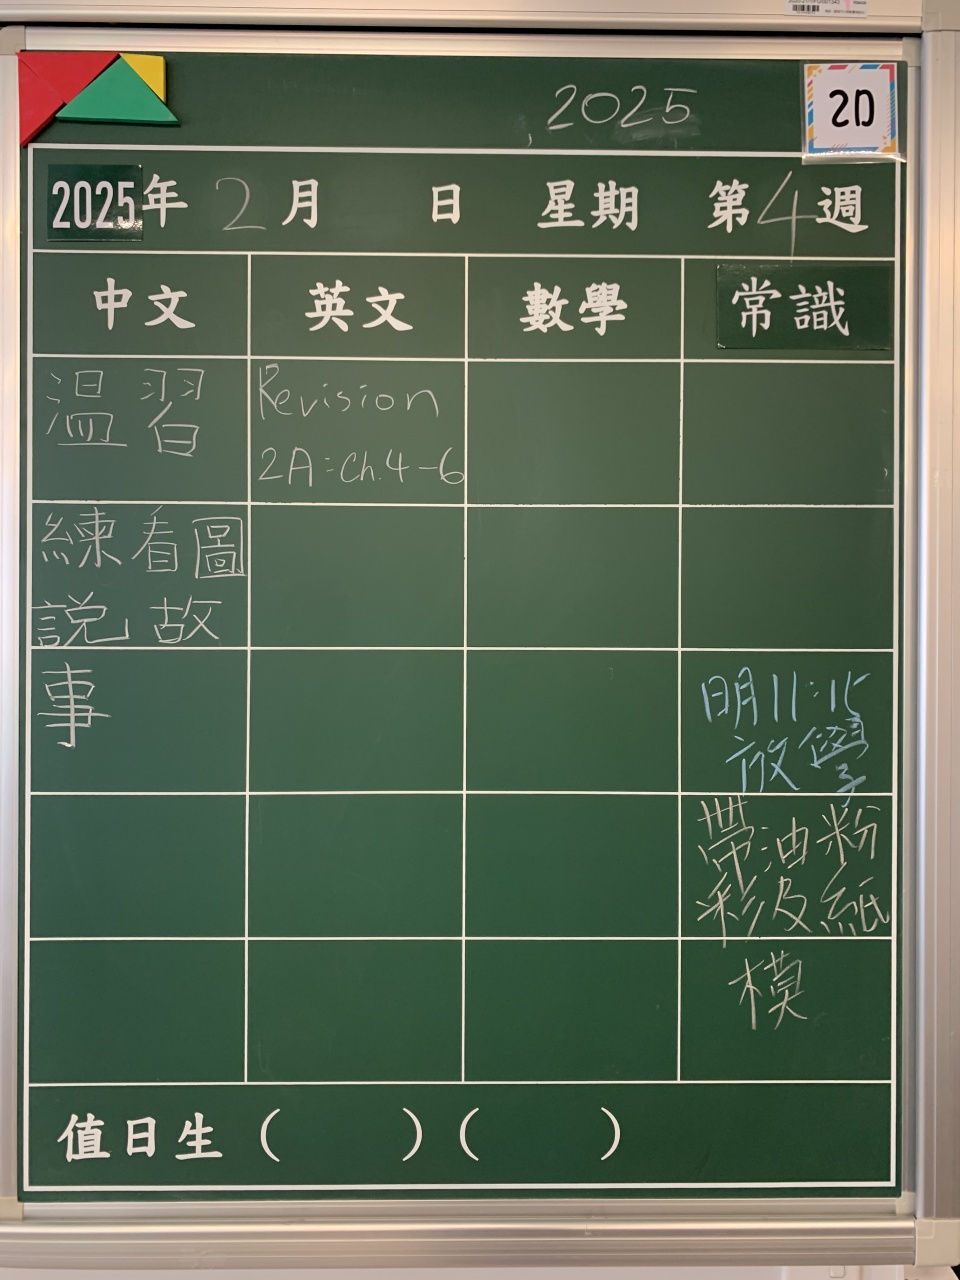 2025
2D
2025年 2月 日 星期 第4週
中文 英文 數學 常識
溫習
Revision
2A:Ch.4-6
練看圖
說故
事
明11:15
放學
帶油粉
彩及紙
模
值日生 ( ) ( )